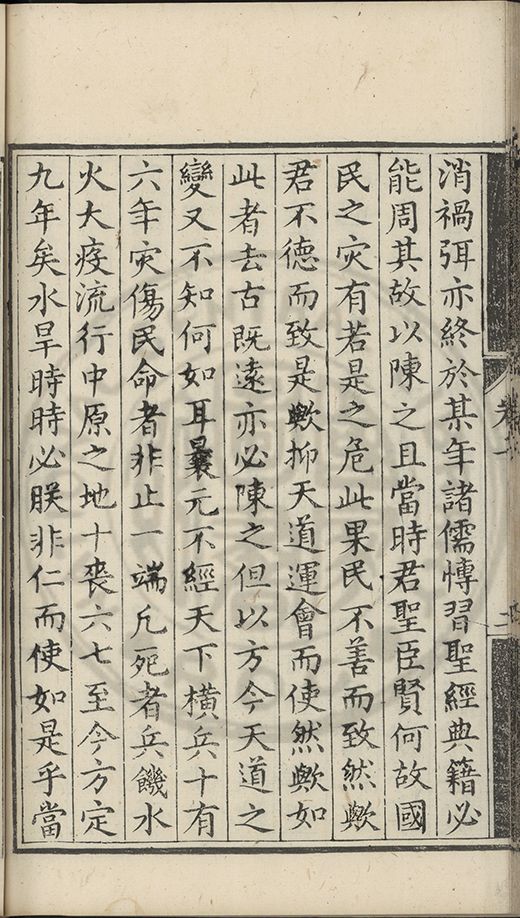 消禍弭亦終於某年諸儒愽習聖經典籍必
能周其故以陳之且當時君聖臣賢何故國
民之灾有若是之危此果民不善而致然歟
君不德而致是歟抑天道運會而使然歟如
此者去古既遠亦必陳之但以方今天道之
變又不知何如耳曩元不經天下横兵十有
六年灾傷民命者非止一端凡死者兵饑水
火大疫流行中原之地十喪六七至今方定
九年矣水旱時時必朕非仁而使如是乎當